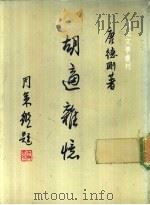 文學叢刊
唐德剛著
胡適雜憶
周策縱題